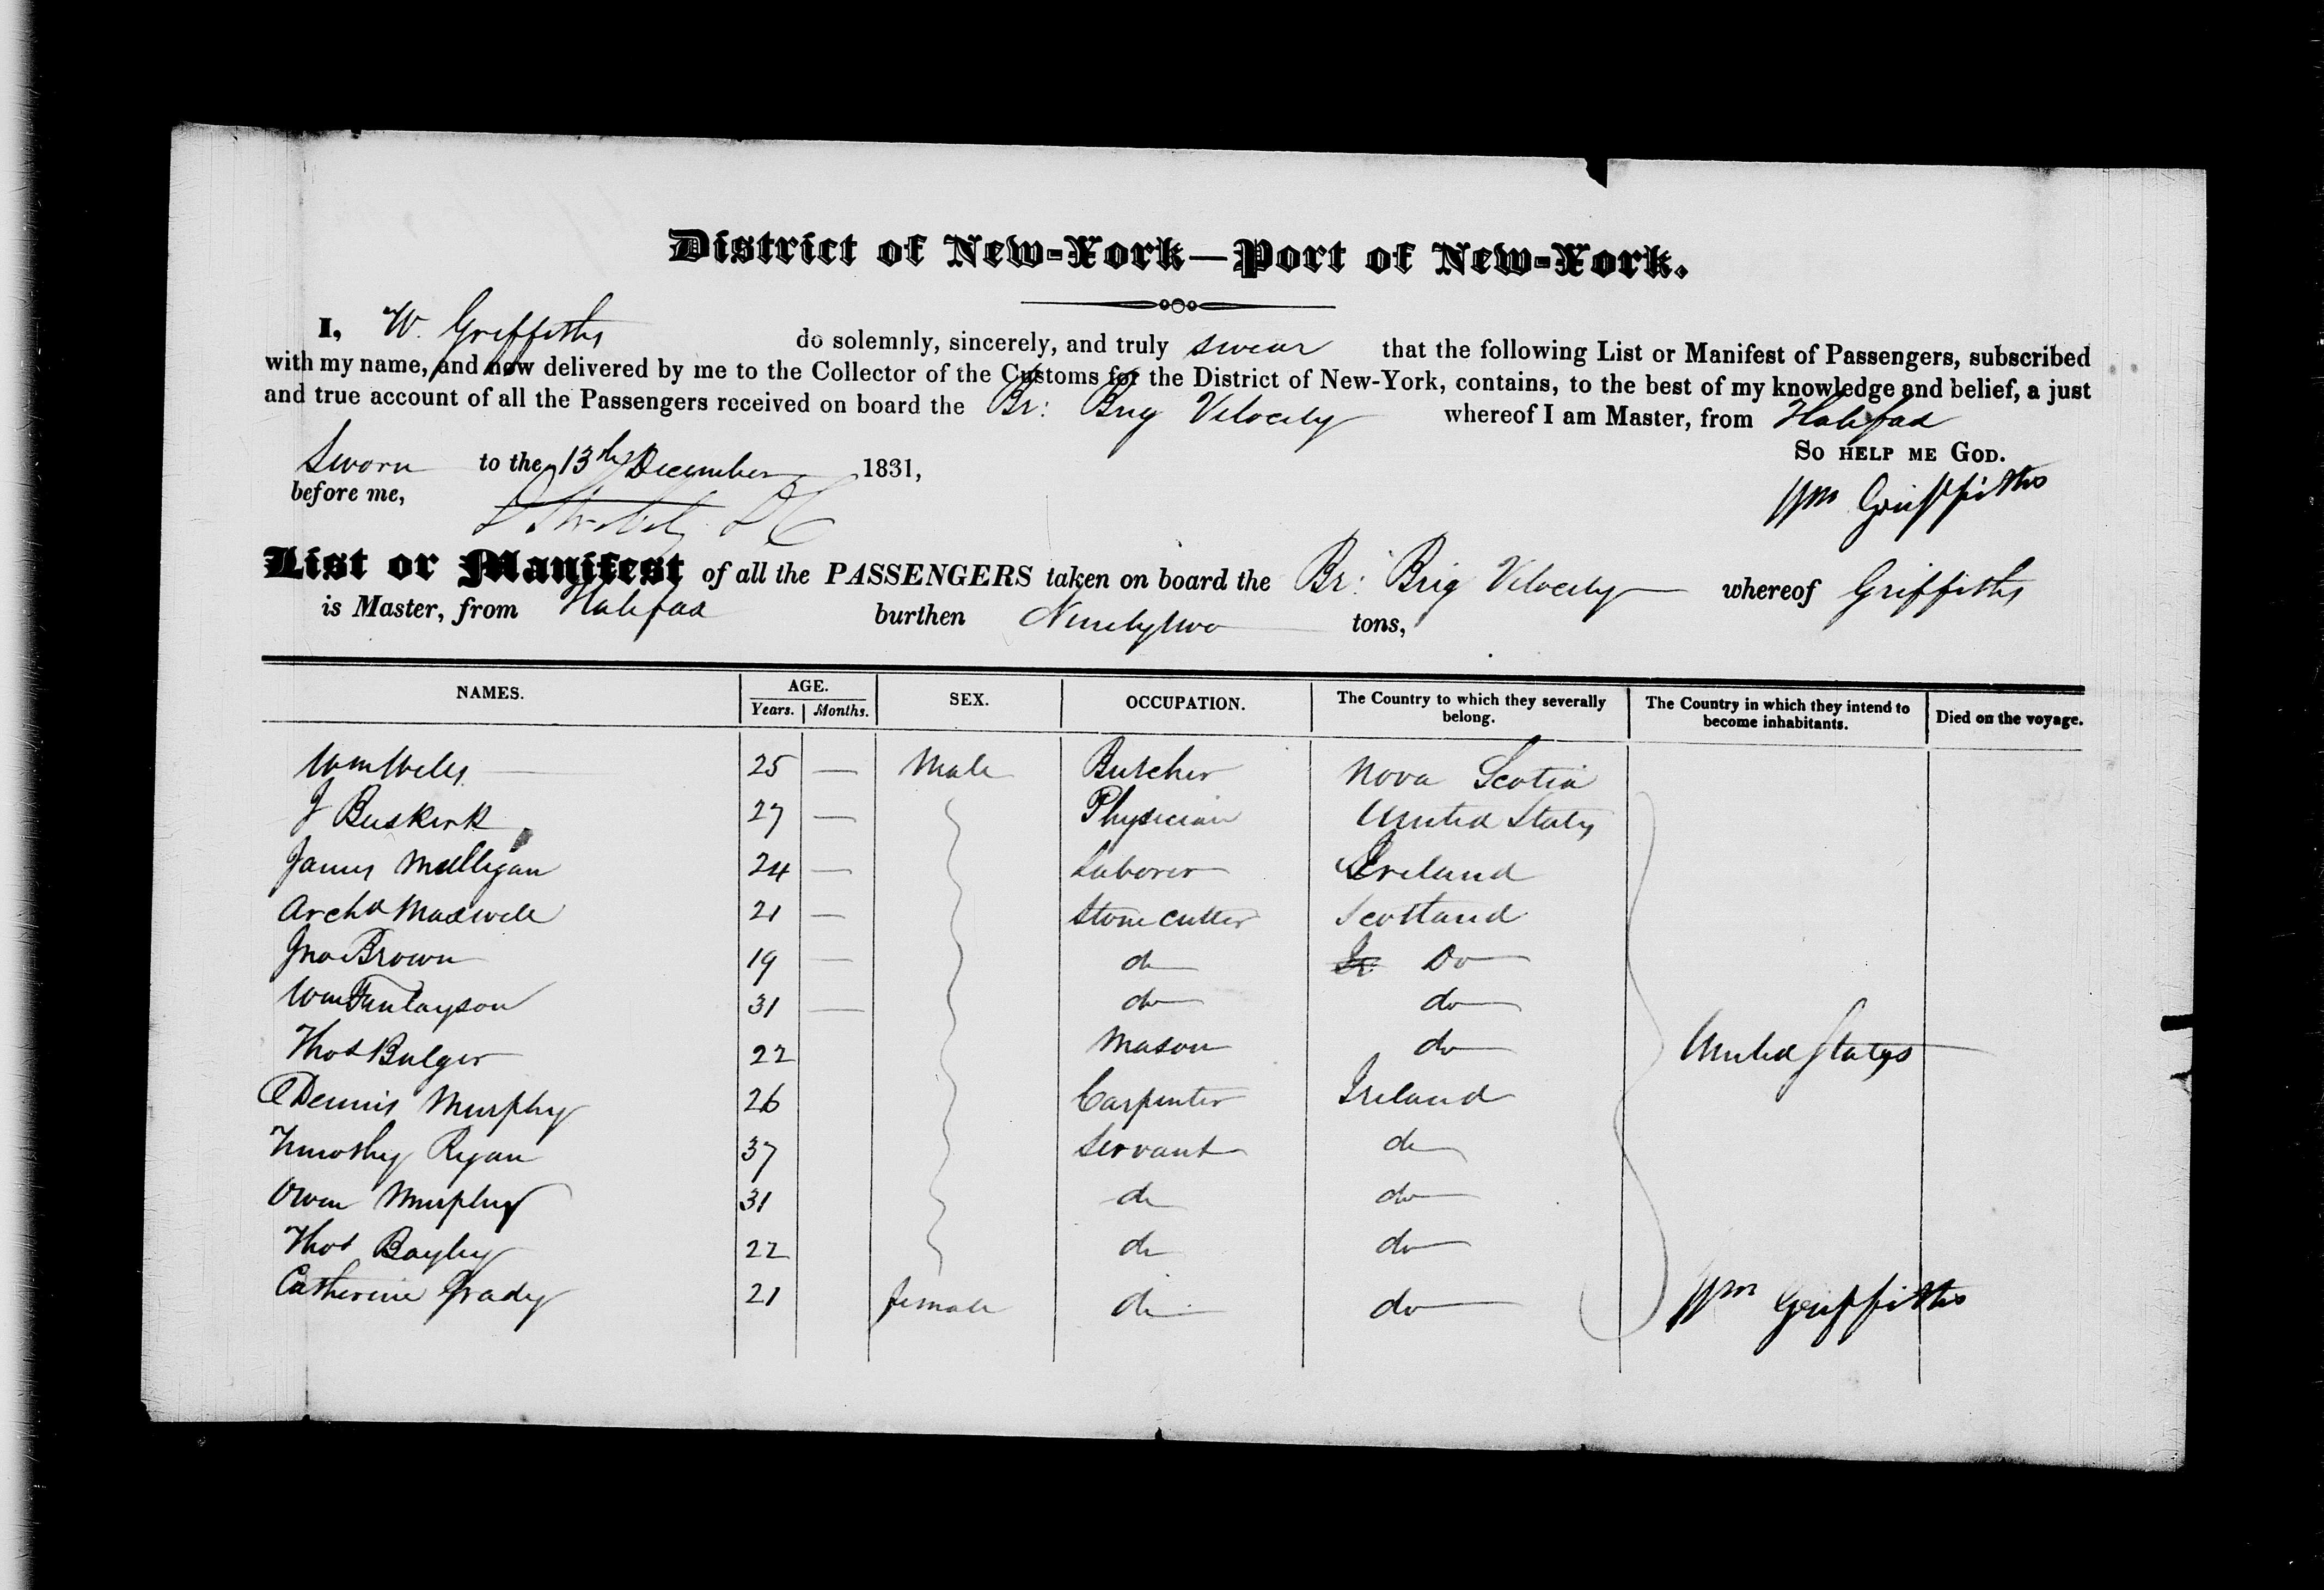 District of New-York—Port of New-York.
I, W. Griffiths do solemnly, sincerely, and truly swear that the following List or Manifest of Passengers, subscribed
with my name, and now delivered by me to the Collector of the Customs for the District of New-York, contains, to the best of my knowledge and belief, a just
and true account of all the Passengers received on board the Br: Brig Velocity whereof I am Master, from Halifax
So help me God.
Sworn to the 13th December 1831,
before me,
Wm Griffiths
List or Manifest of all the PASSENGERS taken on board the Br: Brig Velocity whereof Griffiths
is Master, from Halifax burthen Ninetytwo tons,
NAMES. AGE. Years. Months. SEX. OCCUPATION. The Country to which they severally belong. The Country in which they intend to become inhabitants. Died on the voyage.
Wm Wells 25 — Male Butcher Nova Scotia
J Buskirk 27 — Physician United States
James Mulligan 24 — Laborer Ireland
Archd Maxwell 21 — Stone cutter Scotland
Jno Brown 19 — do Do
Wm Finlayson 31 — do do
Thos Bulger 22 Mason do United States
Dennis Murphy 26 Carpenter Ireland
Timothy Ryan 37 Servant do
Owen Murphy 31 do do
Thos Bayley 22 do do
Catherine Grady 21 female do do
Wm Griffiths